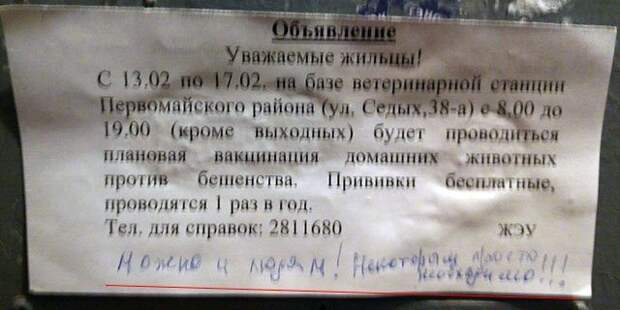 Объявление
Уважаемые жильцы!
С 13,02 по 17.02. на базе ветеринарной станции
Первомайского района (ул, Седых,38-а) с 8,00 до
19,00 (кроме выходных) будет проводиться
плановая вакцинация домашних животных
против бешенства. Прививки бесплатные,
проводятся 1 раз в год.
Тел. для справок: 2811680 ЖЭУ
Можно и людям! Некоторым просто
необходимо!!!